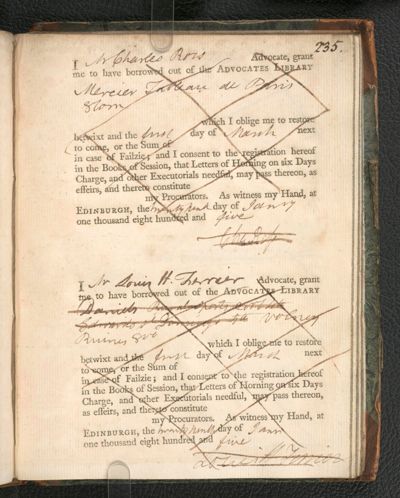 235.
I Mr Charles Ross Advocate, grant
me to have borrowed out of the ADVOCATES LIBRARY
Mercier Tableau de Paris
8 tom
which I oblige me to restore
betwixt and the first day of March next
to come, or the Sum of
in case of Failzie; and I consent to the registration hereof
in the Books of Session, that Letters of Horning on six Days
Charge, and other Executorials needful, may pass thereon, as
effeirs, and thereto constitute
my Procurators. As witness my Hand, at
EDINBURGH, the twenty second day of Janry
one thousand eight hundred and five
I Mr Louis H. Ferrier Advocate, grant
me to have borrowed out of the ADVOCATES LIBRARY
Daniels
Volney
Ruines 8vo
which I oblige me to restore
betwixt and the first day of March next
to come, or the Sum of
in case of Failzie; and I consent to the registration hereof
in the Books of Session, that Letters of Horning on six Days
Charge, and other Executorials needful, may pass thereon,
as effeirs, and thereto constitute
my Procurators. As witness my Hand, at
EDINBURGH, the day of Janry
one thousand eight hundred and five
Louis H Ferrier